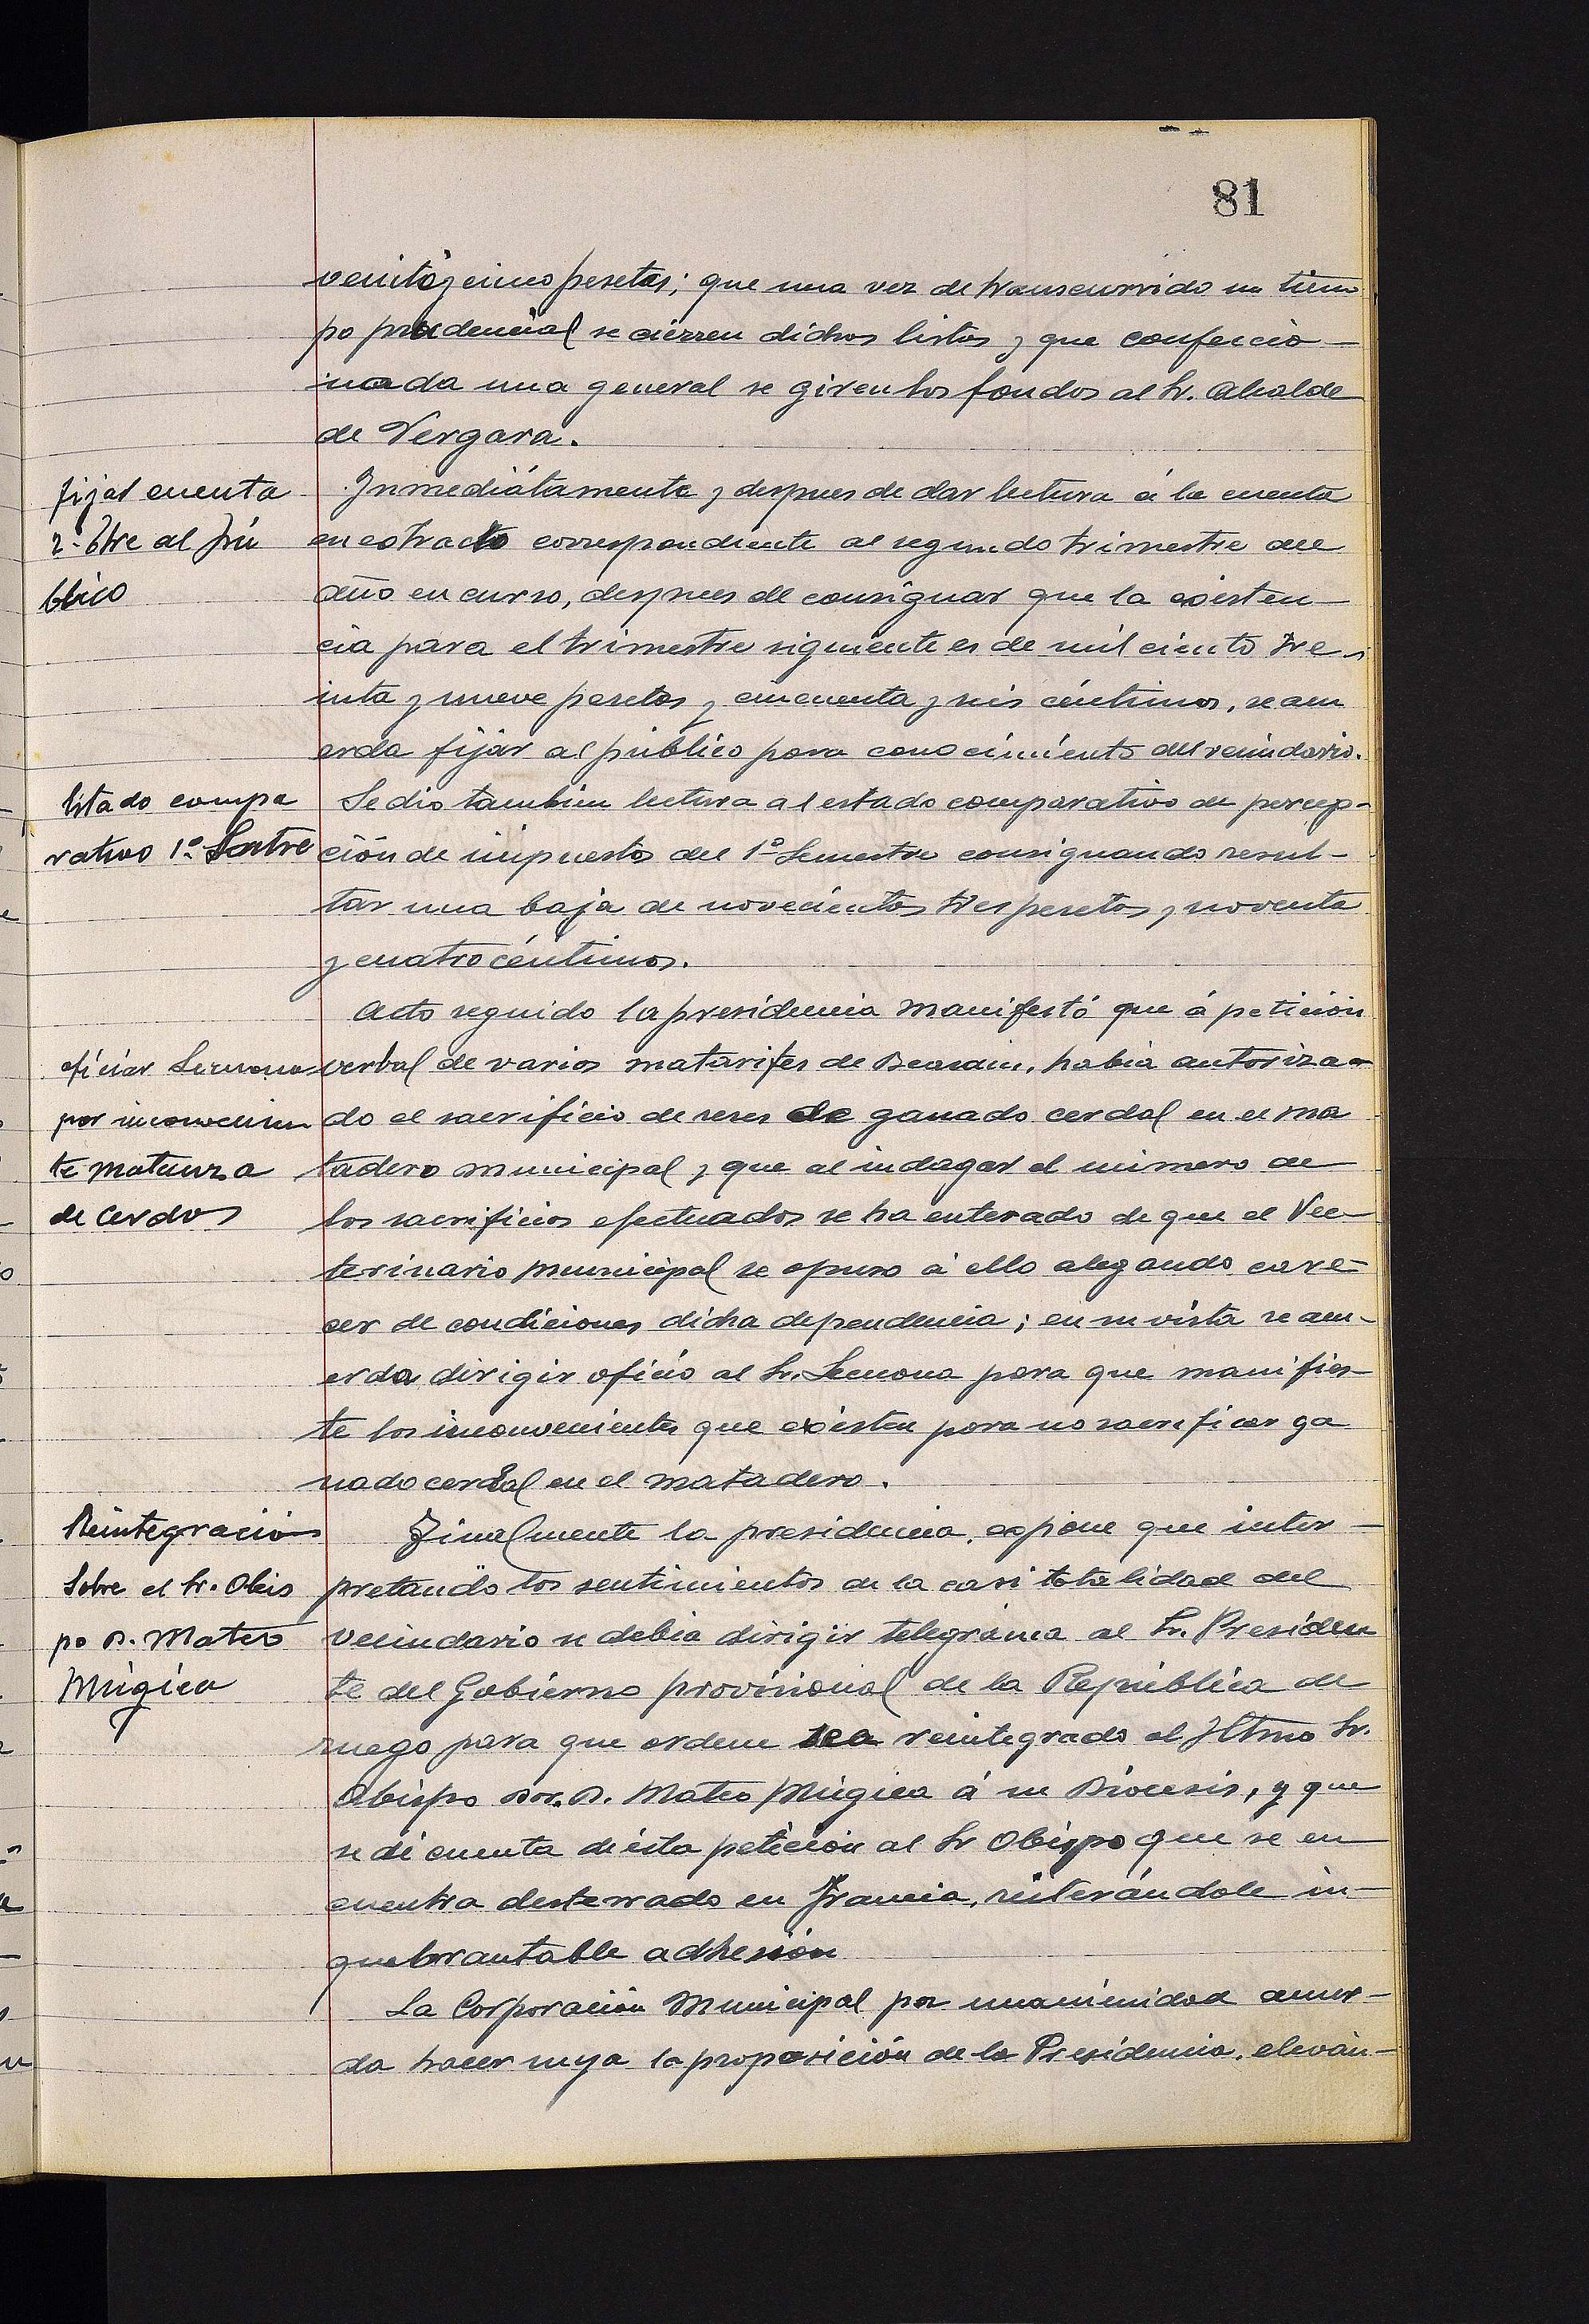 81
veinticinco pesetas; que una vez de transcurrido un tiem
po prudencial se cierren dichas listas y que confeccio-
nada una general se giren los fondos al Sr. Alcalde
de Vergara.
fijar cuenta
2º tre al pú
blico
Inmediátamente y despues de dar lectura á la cuenta
en estracto correspondiente al segundo trimestre del
año en curso, despues de consignar que la existen-
cia para el trimestre siguiente es de mil ciento tre
inta y nueve pesetas y cincuenta y seis céntimos, se acu
erda fijar al público para conocimiento del vecindario.
Estado compa
rativo 1º Sestre
Se dio tambien lectura al estado comparativo de percep-
ción de impuestos del 1º Semestre consignando resul-
tar una baja de novecientas tres pesetas y noventa
y cuatro céntimos.
Acto seguido la presidencia manifestó que á petición
oficiar Lecuona
por inconvenien
te matanza
de cerdos
verbal de varios matarifes de Beasain, habia autoriza-
do el sacrificio de reses de ganado cerdal en el ma
tadero municipal y que al indagar el número de
los sacrificios efectuados se ha enterado de que el Ve-
terinario municipal se opuso á ello alegando care-
cer de condiciones dicha dependencia; en su vista se acu-
erda dirigir oficio al Sr. Lecuona para que manifies-
te los inconvenientes que existen para no sacrificar ga
nado cerdal en el matadero.
Reintegración
sobre el Sr. Obis
po D. Mateo
Múgica
Finalmente la presidencia, expone que inter-
pretando los sentimientos de la casi totalidad del
vecindario se debia dirigir telegrama al Sr. Presiden
te del Gobierno provisional de la República de
ruego para que ordene sea reintegrado el Iltmo Sr.
Obispo Dor. D. Mateo Múgica á su Diocesis, y que
se dé cuenta de ésta petición al Sr Obispo que se en
cuentra desterrado en Francia, reiterándole in-
quebrantable adhesión
La Corporación Municipal por unanimidad acuer-
da hacer suya la proposición de la Presidencia, eleván-